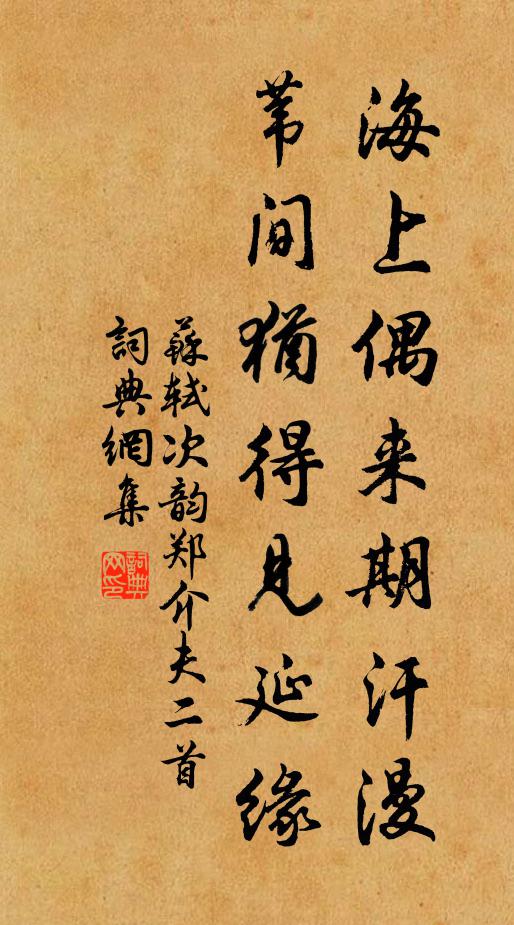 海上偶来期汗漫
苇间犹得见延缘
蘇轼次韵郑介夫二首
詞典網集
詞典
网印